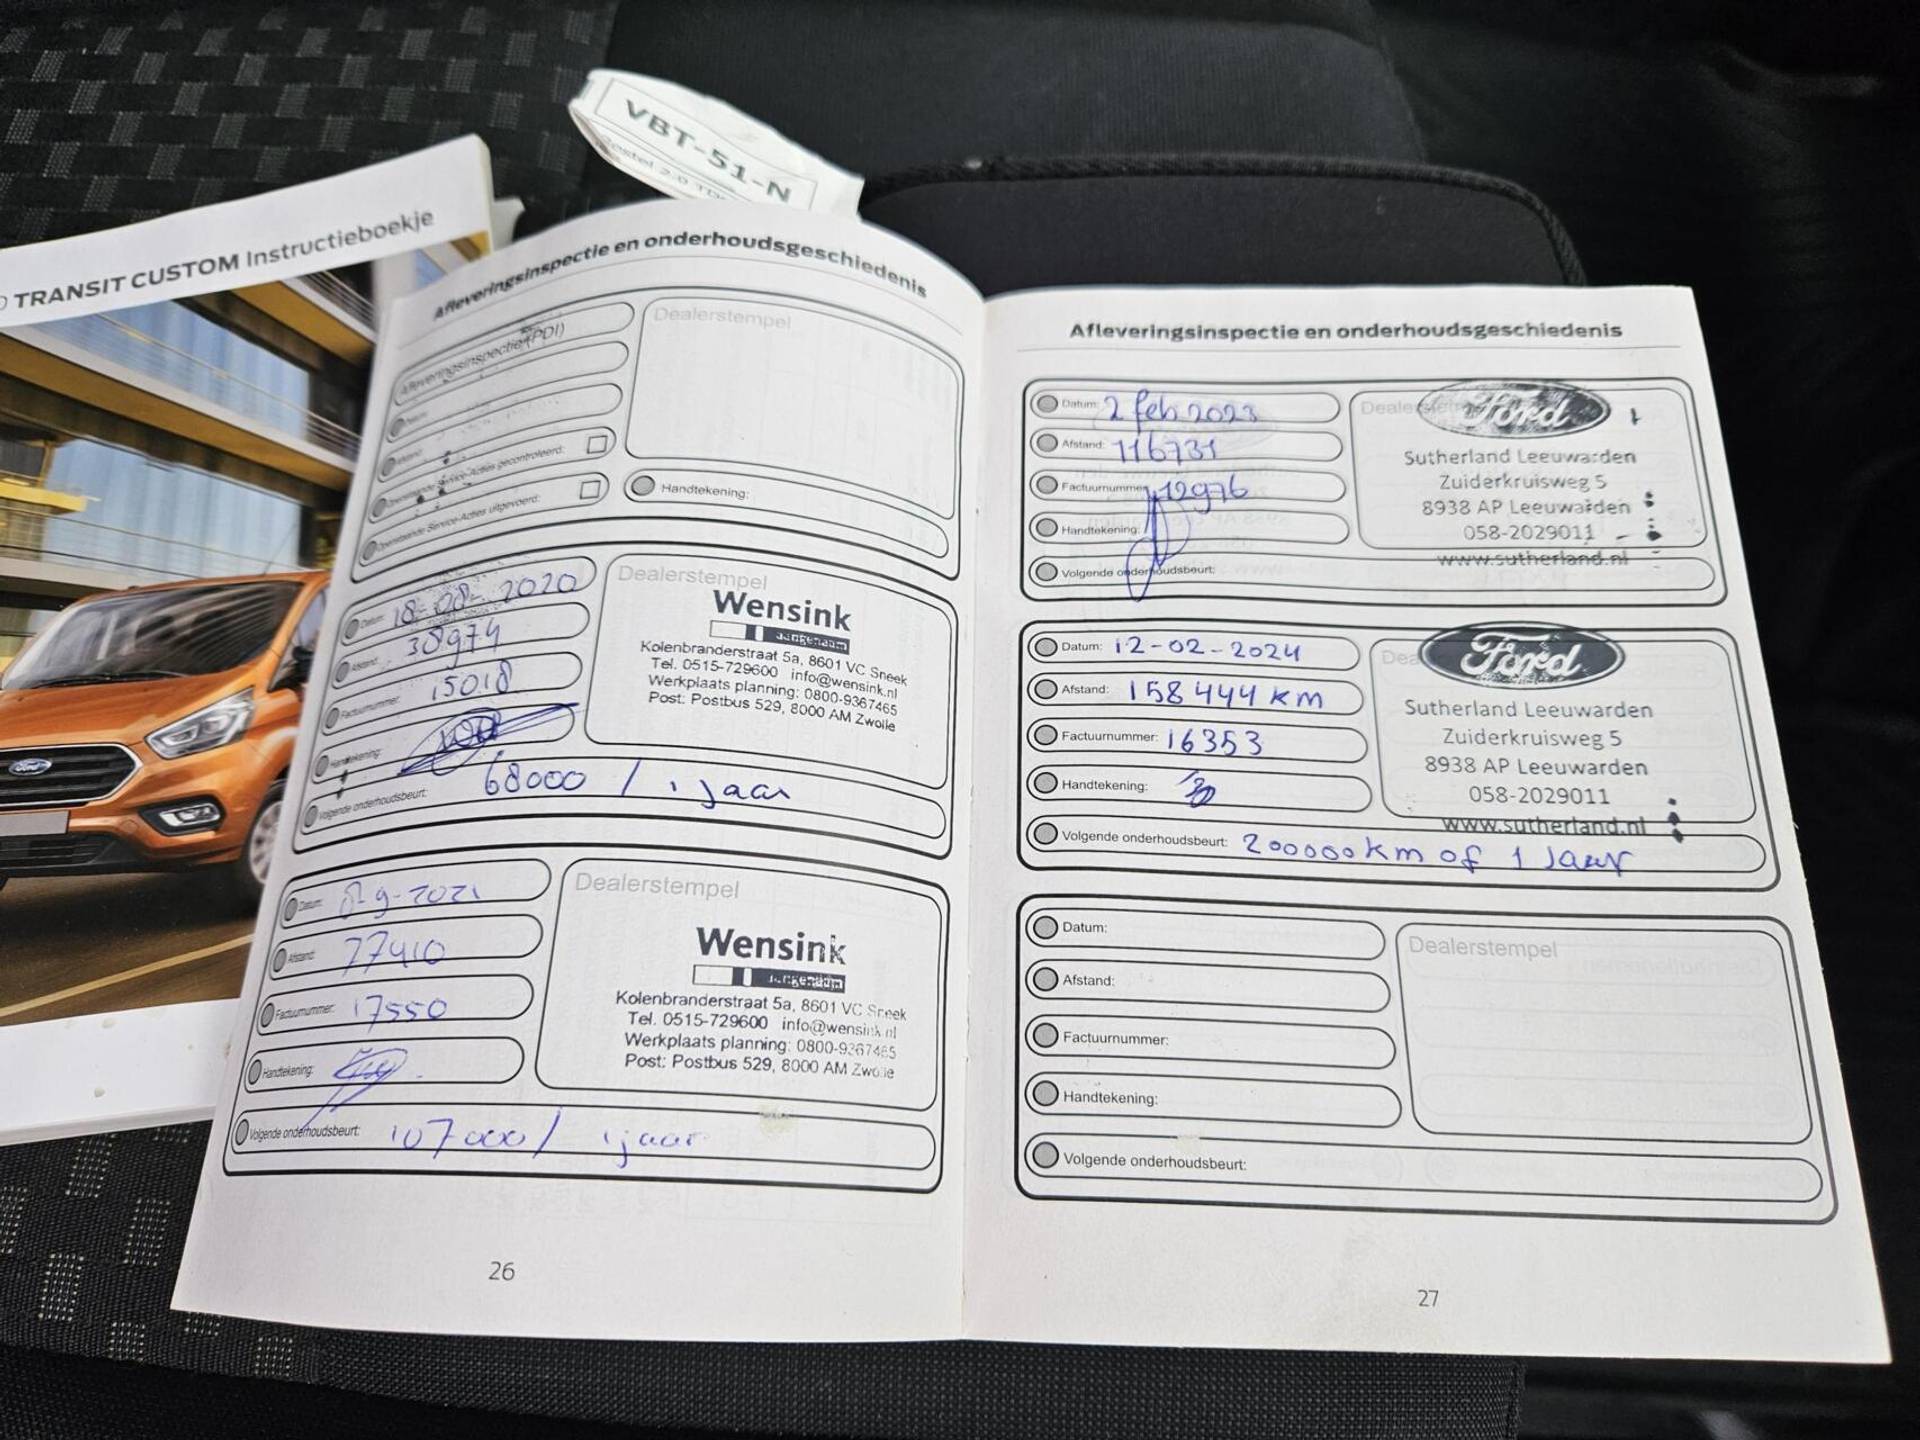 VBT-51-N
TRANSIT CUSTOM Instructieboekje
Ford
Afleveringsinspectie en onderhoudsgeschiedenis
Afleveringsinspectie (PDI)
Datum:
Afstand:
Openstaande Service-Acties gecontroleerd:
Openstaande Service-Acties uitgevoerd:
Dealerstempel
Handtekening:
Datum: 18-08-2020
Afstand: 38974
Factuurnummer: 15018
Handtekening:
Volgende onderhoudsbeurt: 68000 / 1 jaar
Dealerstempel
Wensink
aangenaam
Kolenbranderstraat 5a, 8601 VC Sneek
Tel. 0515-729600 info@wensink.nl
Werkplaats planning: 0800-9367465
Post: Postbus 529, 8000 AM Zwolle
Datum: 8-9-2021
Afstand: 77410
Factuurnummer: 17550
Handtekening:
Volgende onderhoudsbeurt: 107000 / 1 jaar
Dealerstempel
Wensink
aangenaam
Kolenbranderstraat 5a, 8601 VC Sneek
Tel. 0515-729600 info@wensink.nl
Werkplaats planning: 0800-9367465
Post: Postbus 529, 8000 AM Zwolle
26
Afleveringsinspectie en onderhoudsgeschiedenis
Datum: 2 feb 2023
Afstand: 116731
Factuurnummer: 12976
Handtekening:
Volgende onderhoudsbeurt:
Dealerstempel
Ford
Sutherland Leeuwarden
Zuiderkruisweg 5
8938 AP Leeuwarden
058-2029011
www.sutherland.nl
Datum: 12-02-2024
Afstand: 158444 km
Factuurnummer: 16353
Handtekening:
Volgende onderhoudsbeurt: 200000 km of 1 Jaar
Ford
Sutherland Leeuwarden
Zuiderkruisweg 5
8938 AP Leeuwarden
058-2029011
www.sutherland.nl
Datum:
Afstand:
Factuurnummer:
Handtekening:
Volgende onderhoudsbeurt:
Dealerstempel
27